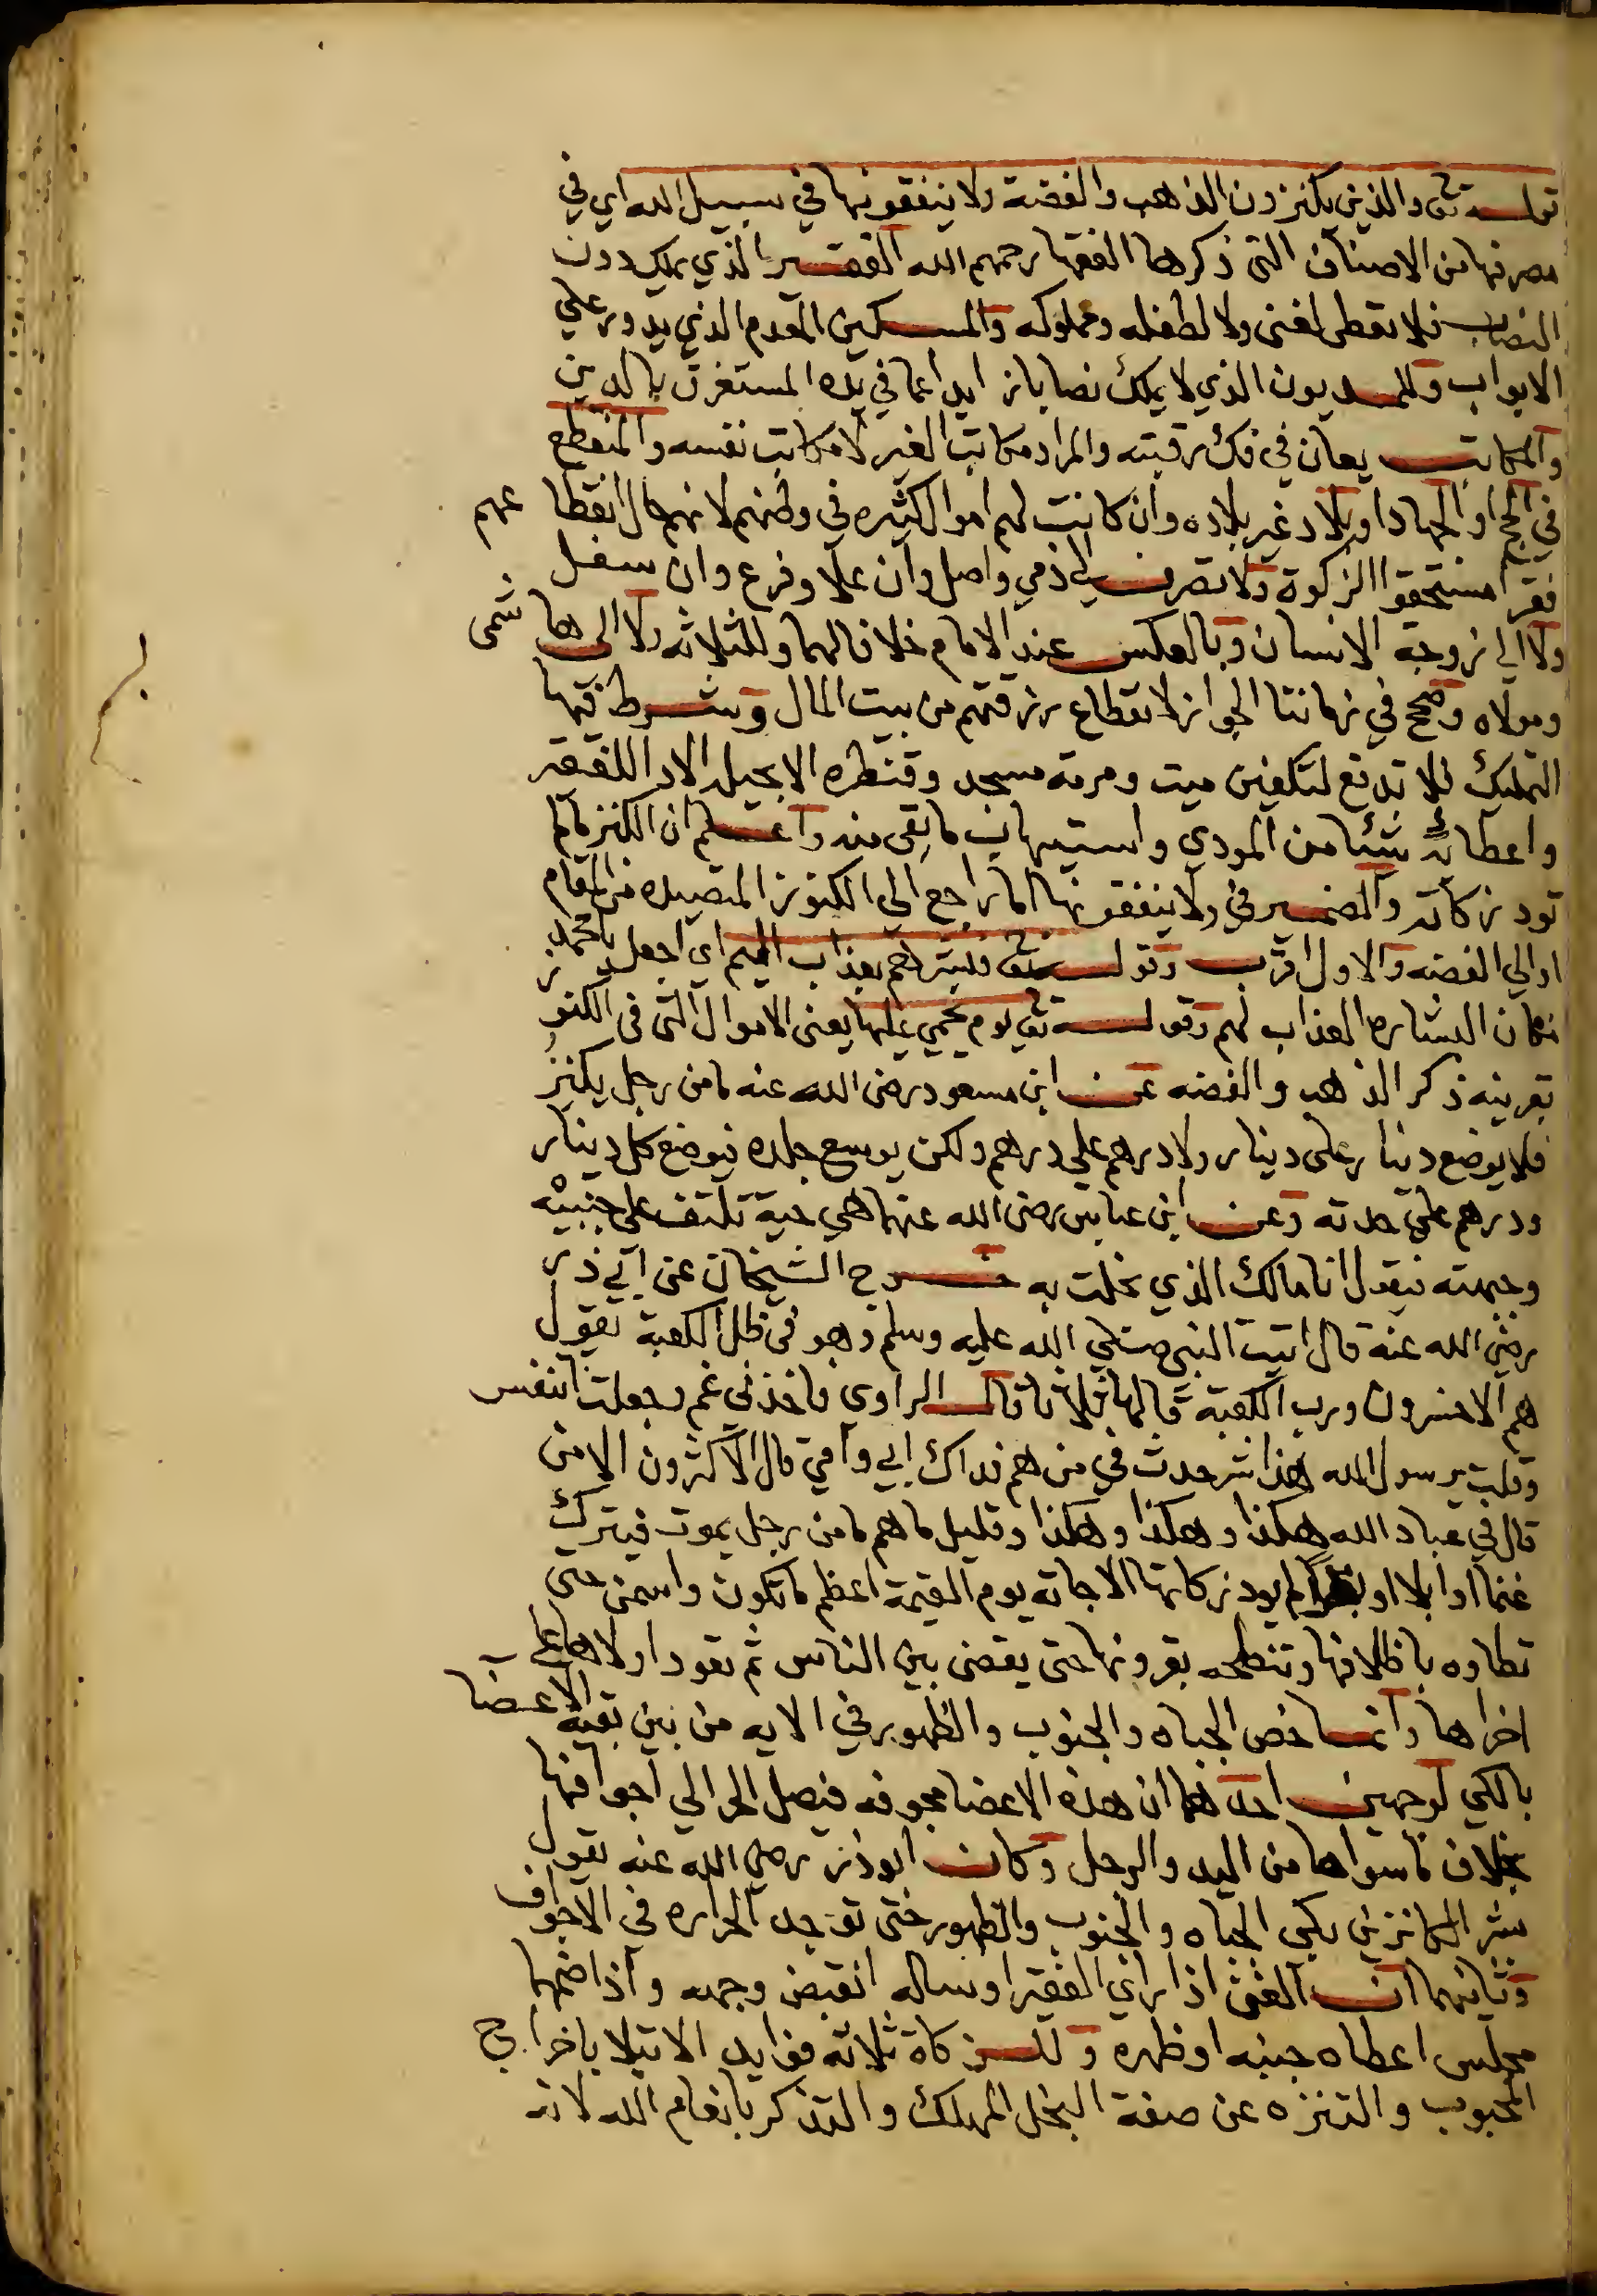 قوله تعالى والذين يكنزون الذهب والفضة ولا ينفقونها في سبيل الله اي في
مصرفها من الاصناف التى ذكرها الفقها رحمهم الله الفقير الذي يملك دون
النصاب فلا تعطى لغنى ولا لطفله ومملوكه والمسكين المعدم الذي يدور على
الابواب والمديون الذي لا يملك نصابا زايدا عما في يده المستغرق بالدين
والمكاتب يعان في فك رقبته والمراد مكاتب الغير لا مكاتب نفسه والمنقطع
في الحج او الجهاد او بلاد غير بلاده وان كانت لهم اموال كثيره في وطنهم لانهم حال انقطا عهم
فقرا مستحقوا الزكوة ولا تصرف الى ذمي واصل وان علا وفرع وان سفل
ولا الي زوجة الانسان وبالعكس عند الامام خلافا لهما وللثلاثه ولا الى هاشمى
ومولاه وصحح في زماننا الجواز لانقطاع رزقهم من بيت المال وشرط فيها
التمليك فلا تدفع لتكفين ميت ومرمة مسجد وقنطره الا بحيلة الادا للفقير
واعطائه شئا من المودي واستيهاب ما بقى منه واعلم ان الكنز مالم
تود زكاته والضمير في ولا ينفقونها اما راجع الي الكنوز المتصيده من المقام
او الي الفضه والاول اقرب وقوله تعالى فبشرهم بعذاب اليم اي اجعل يا محمد
مكان البشاره العذاب لهم وقوله تعالى يوم يحمي عليها يعنى الاموال التى فى الكنوز
بقرينه ذكر الذهب والفضه عن ابن مسعود رضى الله عنه ما من رجل يكنز
فلا يوضع دينار على دينار ولا درهم علي درهم ولكن يوسع جلده فيوضع كل دينار
ودرهم علي حدته وعن ابن عباس رضى الله عنهما هي حية تلتف على جنبيه
وجبهته فيقول انا مالك الذي بخلت به خرج الشيخان عن ابي ذر
رضى الله عنه قال اتيت النبى صلى الله عليه وسلم وهو فى ظل الكعبة يقول
هم الاخسرون ورب الكعبة قالها ثلاثا قال الراوي فاخذنى غم وجعلت اتنفس
وقلت يرسول الله هذا شر حدث في من هم فداك ابي وامي قال الاكثرون الا من
قال في عباد الله هكذا وهكذا وهكذا وقليل ما هم ما من رجل يموت فيترك
غنما او ابلا او بقرا لم يود زكاتها الا جاته يوم القيمة اعظم ما تكون واسمن حتى
تطاوه باظلافها وتنطحه بقرونها حتى يقضى بين الناس ثم تعود اولاها على
اخراها وانما خص الجباه والجنوب والظهور في الايه من بين بقية الاعضا
بالكي لوجهين احدهما ان هذه الاعضا مجوفه فيصل الحر الي اجوافها
بخلاف ما سواها من اليد والرجل وكان ابو ذر رضي الله عنه يقول
بشر الكانزين بكي الجباه والجنوب والظهور حتى توجد الحراره في الاجواف
وثانيهما ان الغنى اذا راي الفقير او ساله انقبض وجهه واذا ضمهما
مجلس اعطاه جنبه او ظهره وللزكاة ثلاثة فوايد الابتلا باخراج
المحبوب والتنزه عن صفة البخل المهلك والتذكر بانعام الله لانه